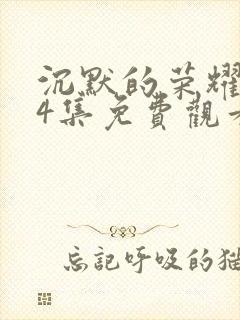 沉默的荣耀
4集免費觀
忘記呼吸的猫